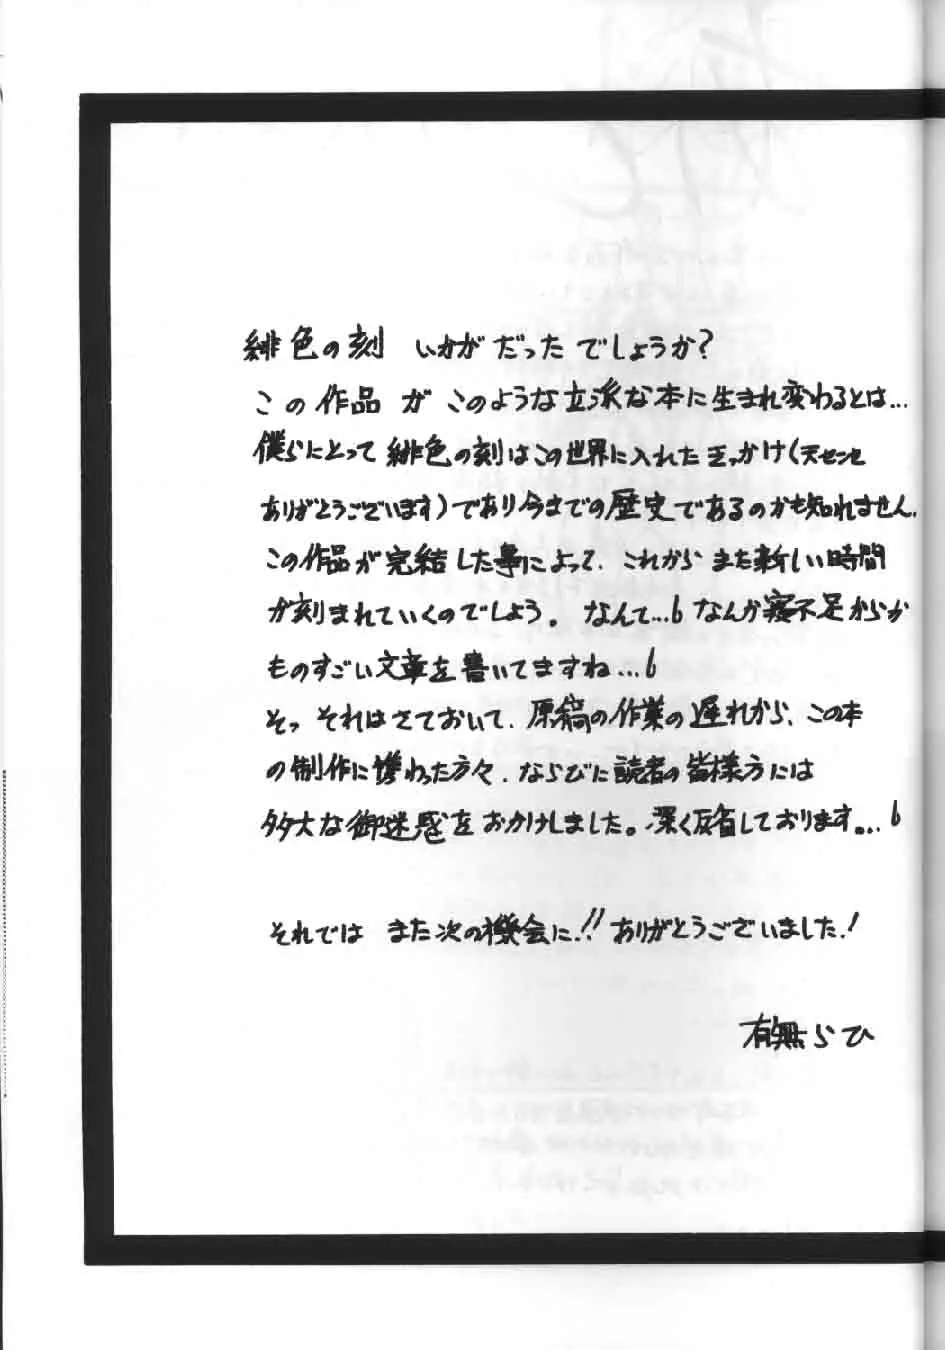 緋色の刻 いかがだったでしょうか?
この作品が このような立派な本に生まれ変わるとは...
僕らにとって緋色の刻はこの世界に入れたきっかけ(天センセ
ありがとうございます)であり今までの歴史であるのかも知れません.
この作品が完結した事によって、これからまた新しい時間
が刻まれていくのでしょう。なんて...6 なんか寝不足からか
ものすごい文章を書いてますね...6
そっ それはさておいて、原稿の作業の遅れから、この本
の制作に携わった方々、ならびに読者の皆様方には
多大な御迷惑をおかけしました。深く反省しております...6
それでは また次の機会に!! ありがとうございました!
有無らひ